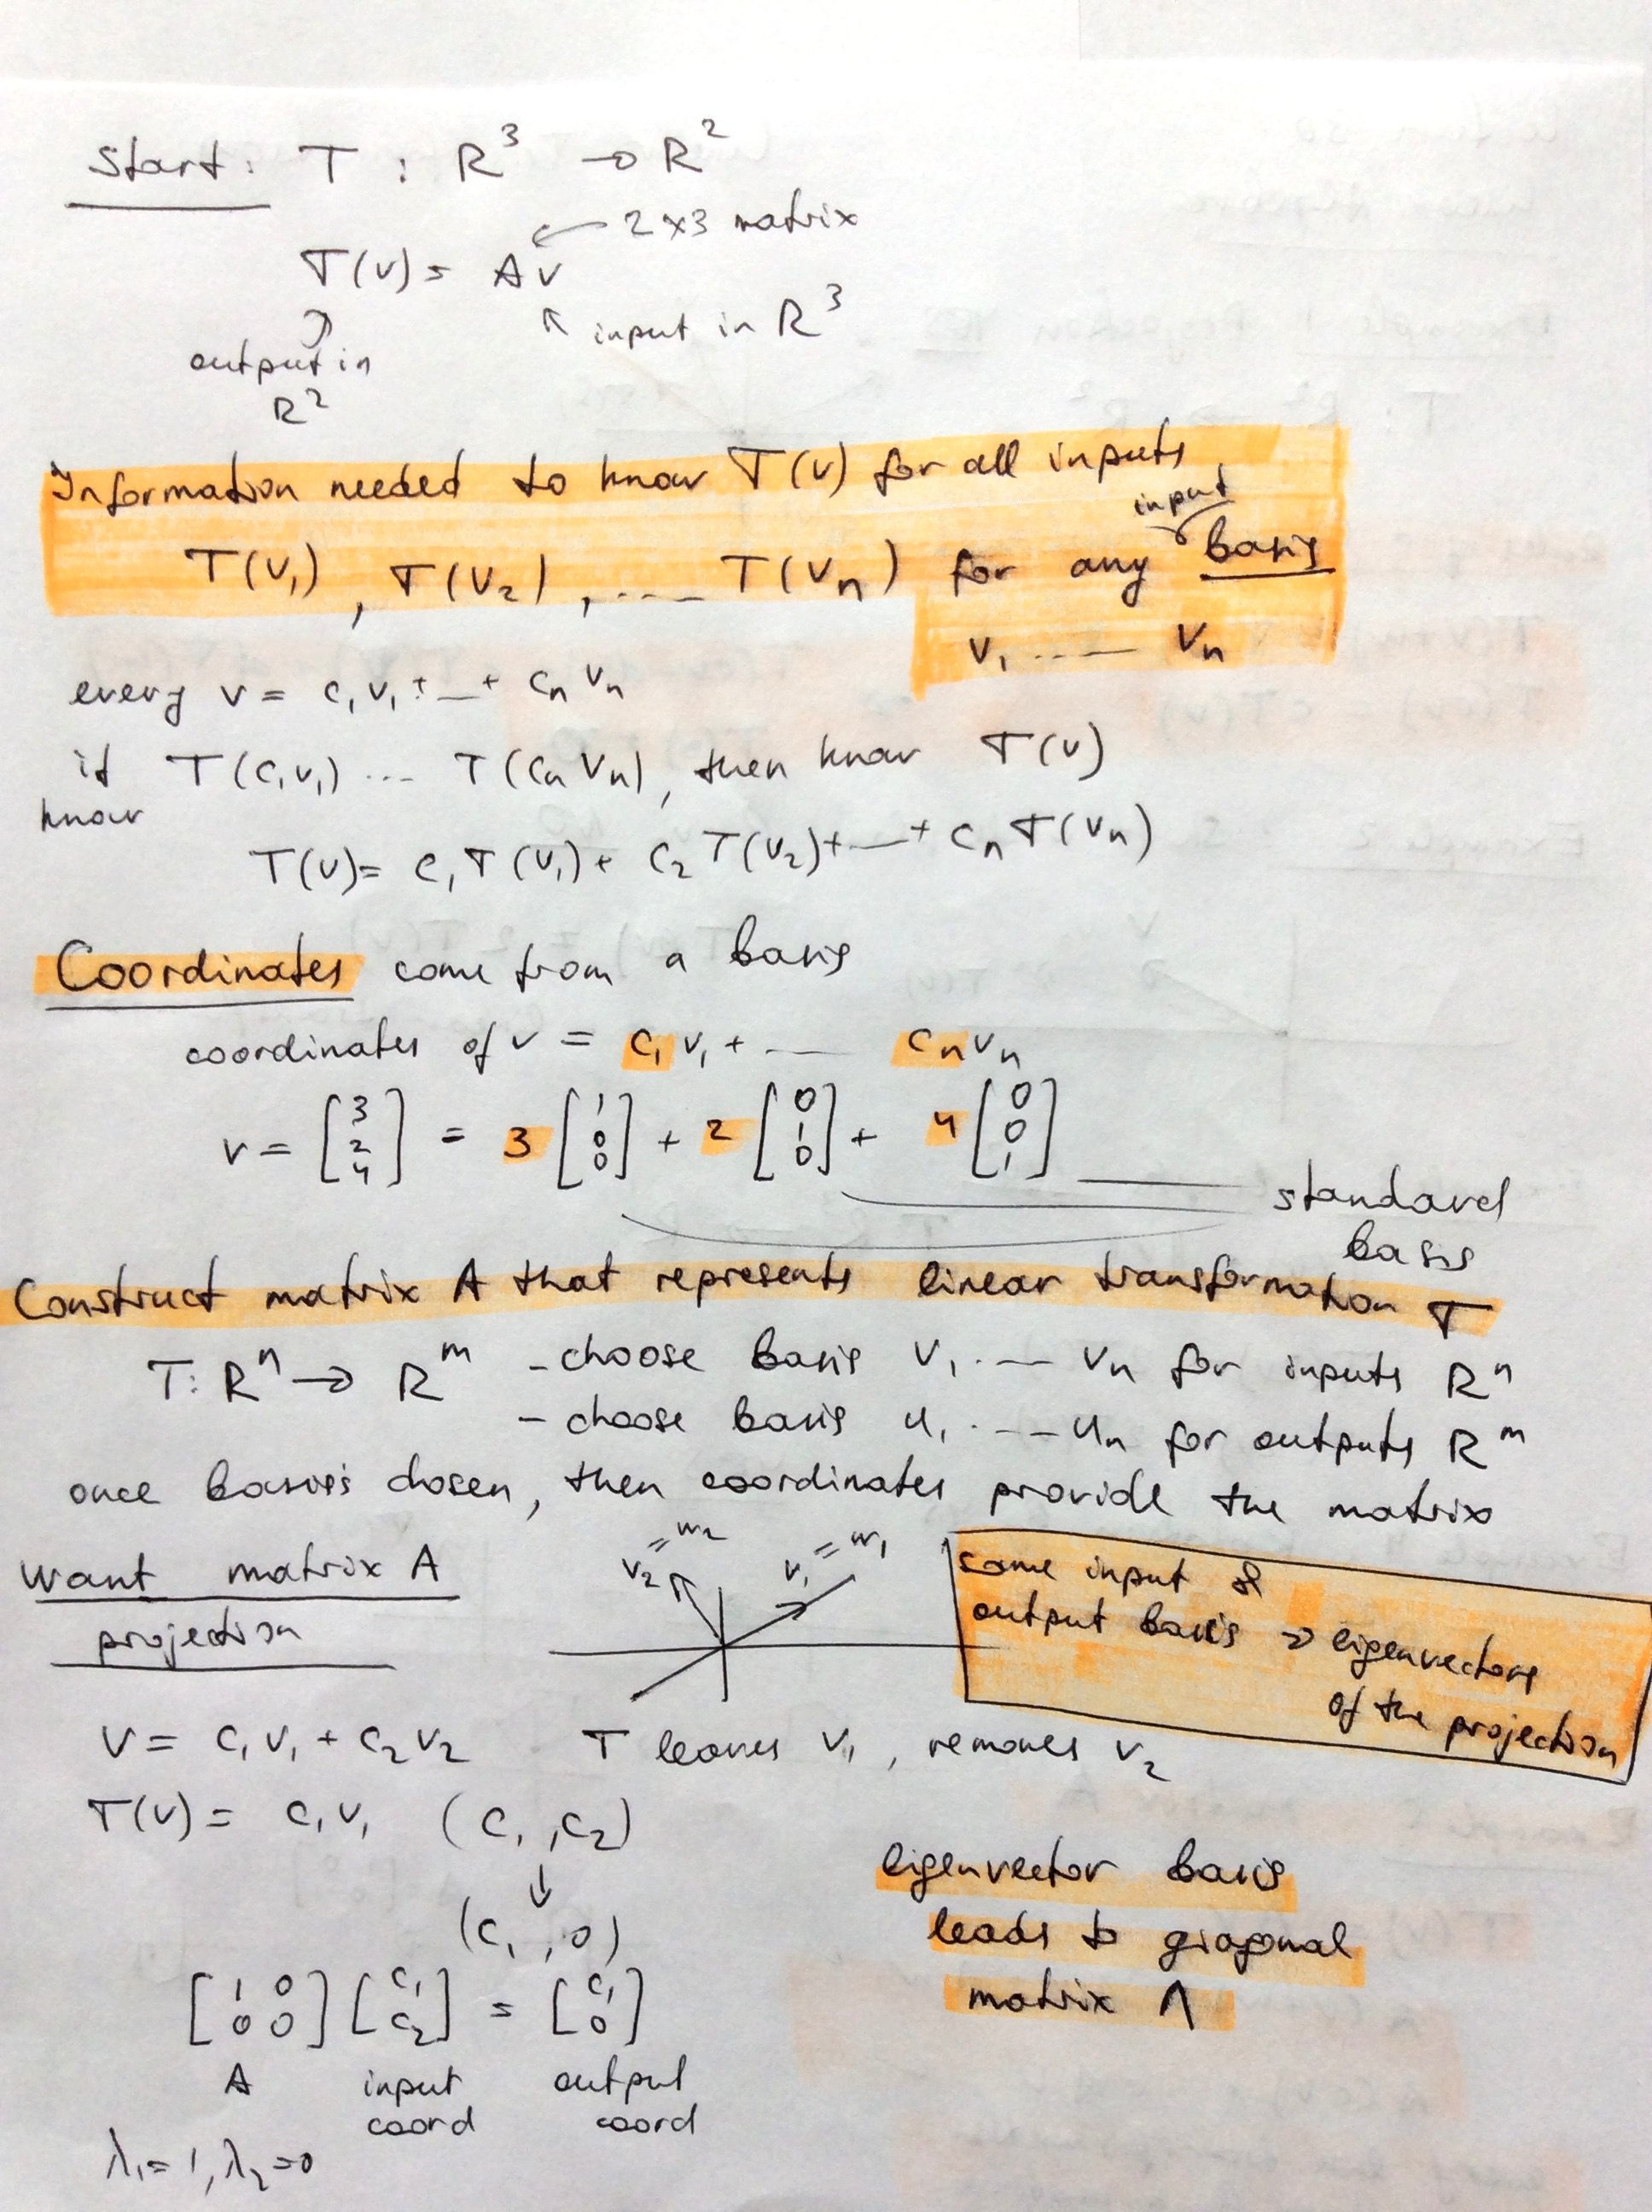 Start: T : R³ → R²
← 2×3 matrix
T(v) = Av
input in R³
output in
R²
Information needed to know T(v) for all inputs
input
T(v₁), T(v₂), .... T(vₙ) for any basis
v₁ .... vₙ
every v = c₁v₁ + ... + cₙvₙ
if T(c₁v₁) ... T(cₙvₙ), then know T(v)
know
T(v) = c₁T(v₁) + c₂T(v₂) + ... + cₙT(vₙ)
Coordinates come from a basis
coordinates of v = c₁v₁ + ... cₙvₙ
v = [3 2 4] = 3 [1 0 0] + 2 [0 1 0] + 4 [0 0 1]
standard
basis
Construct matrix A that represents linear transformation T
T: Rⁿ → Rᵐ - choose basis v₁ .... vₙ for inputs Rⁿ
- choose basis u₁ .... uₙ for outputs Rᵐ
once bases chosen, then coordinates provide the matrix
want matrix A
projection
v₂ = w₂
v₁ = w₁
same input &
output basis → eigenvectors
of the projection
v = c₁v₁ + c₂v₂ T leaves v₁, removes v₂
T(v) = c₁v₁ (c₁, c₂)
↓
(c₁, 0)
eigenvector basis
leads to giagonal
matrix Λ
[1 0 0 0] [c₁ c₂] = [c₁ 0]
A input output
coord coord
λ₁ = 1, λ₂ = 0